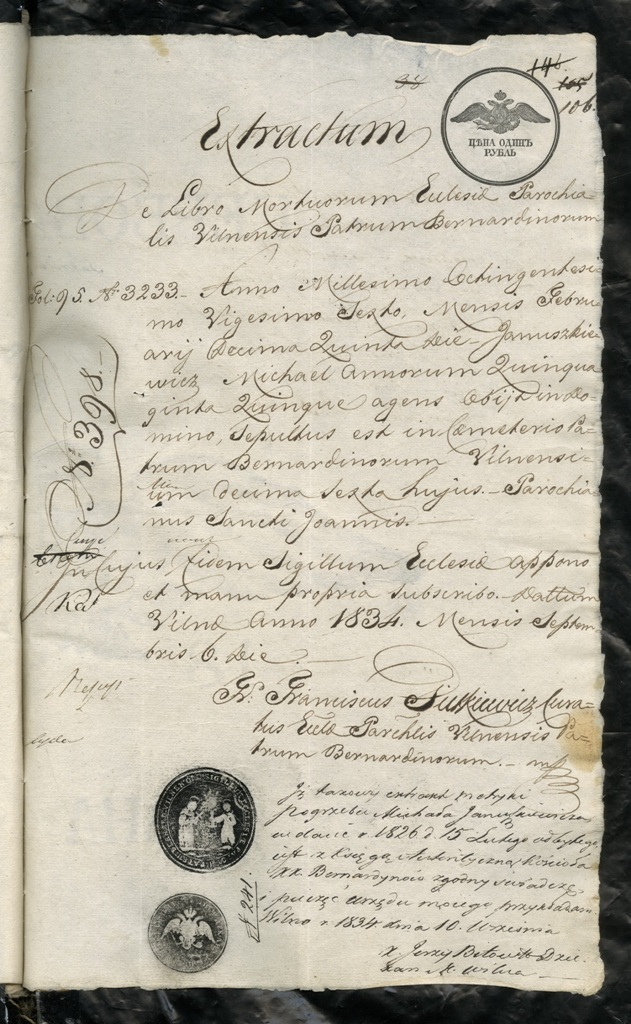 38
146.
105
106.
ЦѢНА ОДИНЪ
РУБЛЬ
Extractum
De Libro Mortuorum Eclesiæ Parochia
lis Vilnensis Patrum Bernardinorum
Fol: 95. N 3233. - Anno Millesimo Octingentesi
mo Vigesimo Sexto, Mensis Febru
arij Decima Quinta die - Januszkie
wicz Michael Annorum Quinqua
ginta Quinque agens Obijt in Do=
mino, Sepultus est in Cæmeterio Pa=
trum Bernardinorum Vilnensi=
um Decima Sexta hujus. - Parochia
nus Sancti Joannis. -
N. 398. -
In Cujus fidem Sigillum Eclesiæ appono
et manu propria subscribo. Dattum
Vilnæ Anno 1834. Mensis Septem
bris 6. Die
Fr. Franciscus Sutkiewicz Cura=
tus Ecclæ Parchlis Vilnensis Pa=
trum Bernardinorum. - mp
Iż takowy extrakt metryki
pogrzebu Michała Januszkiewicza
w dacie r. 1826 d. 15 Lutego odbytego,
jest z Księgą Autentyczną Kościoła
XX. Bernardynów zgodny świadczę,
i pieczęć urzędu mojego przykładam
Wilno r. 1834 dnia 10. Września
N 241.
X Jerzy Dzie
kan Wileń